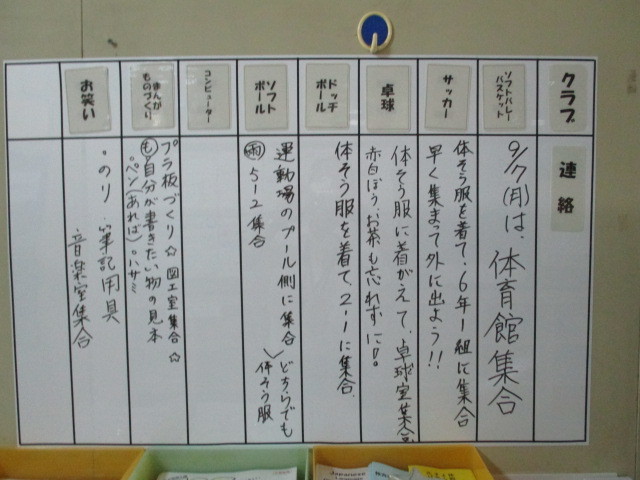 クラブ
連絡
ソフトバレー
バスケット
9/7(月)は、体育館集合
サッカー
体そう服を着て、6年1組に集合
早く集まって外に出よう!!
卓球
体そう服に着がえて、卓球室集合
赤白ぼう、お茶も忘れずに!。
ドッヂ
ボール
体そう服を着て、2-1に集合。
ソフト
ボール
運動場のプール側に集合
雨 5-2集合
どちらでも
体そう服
コンピューター
まんが
ものづくり
プラ板づくり☆ 図工室集合☆
も 自分が書きたい物の見本
・ペン(あれば)・ハサミ
お笑い
・のり ・筆記用具
・音楽室集合